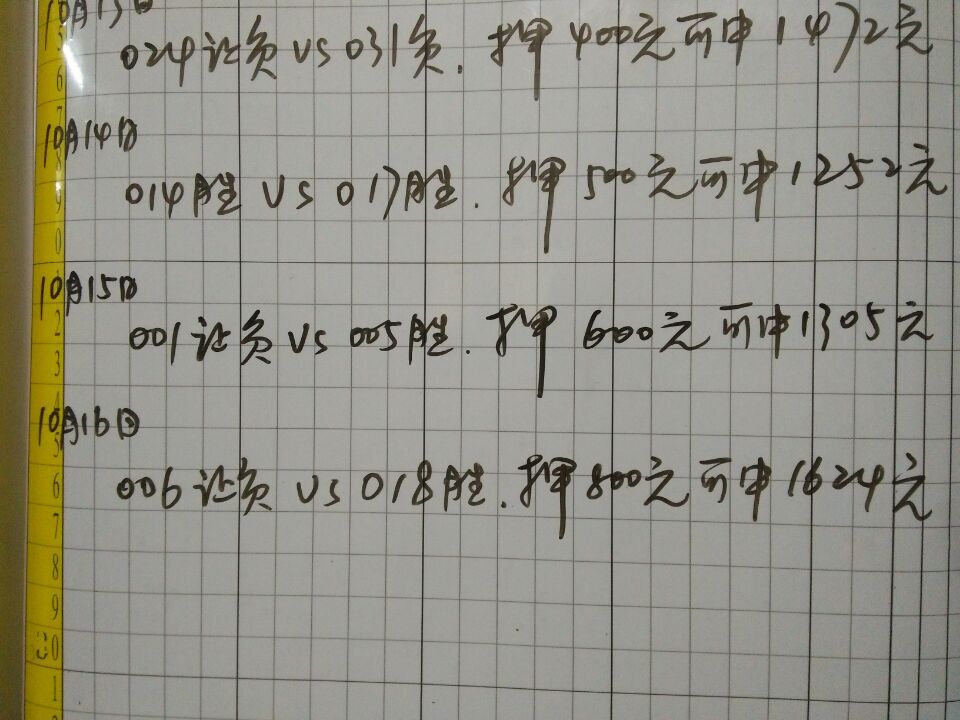 10月13日
024让负 VS 031负. 押400元可中1472元
10月14日
014胜 VS 017胜. 押500元可中1252元
10月15日
001让负 VS 005胜. 押600元可中1305元
10月16日
006让负 VS 018胜. 押800元可中1624元
5
6
7
8
9
0
1
2
3
4
5
6
7
8
9
0
1